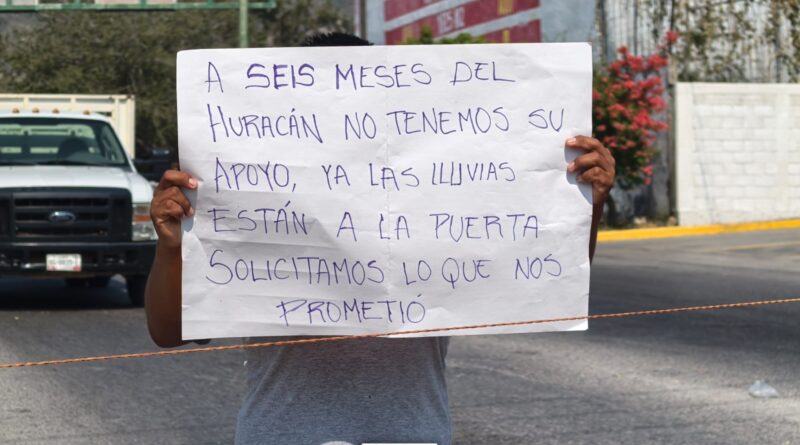 A SEIS MESES DEL
HURACÁN NO TENEMOS SU
APOYO, YA LAS LLUVIAS
ESTÁN A LA PUERTA
SOLICITAMOS LO QUE NOS
PROMETIÓ